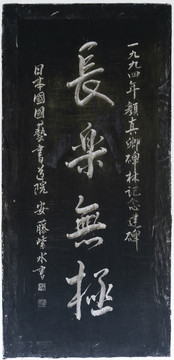 一九九四年顔真卿碑林記念建碑
長楽無極
日本國國藝書道院 安藤紫水書